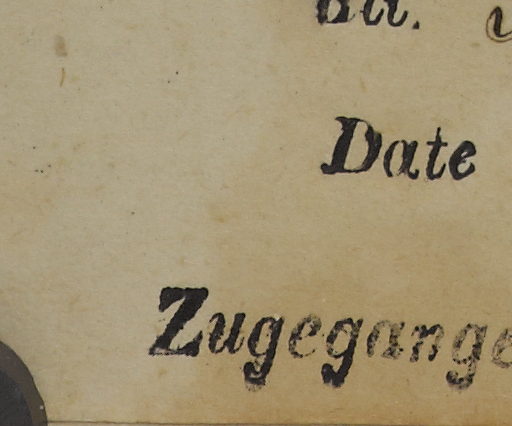 Date
Zugegange